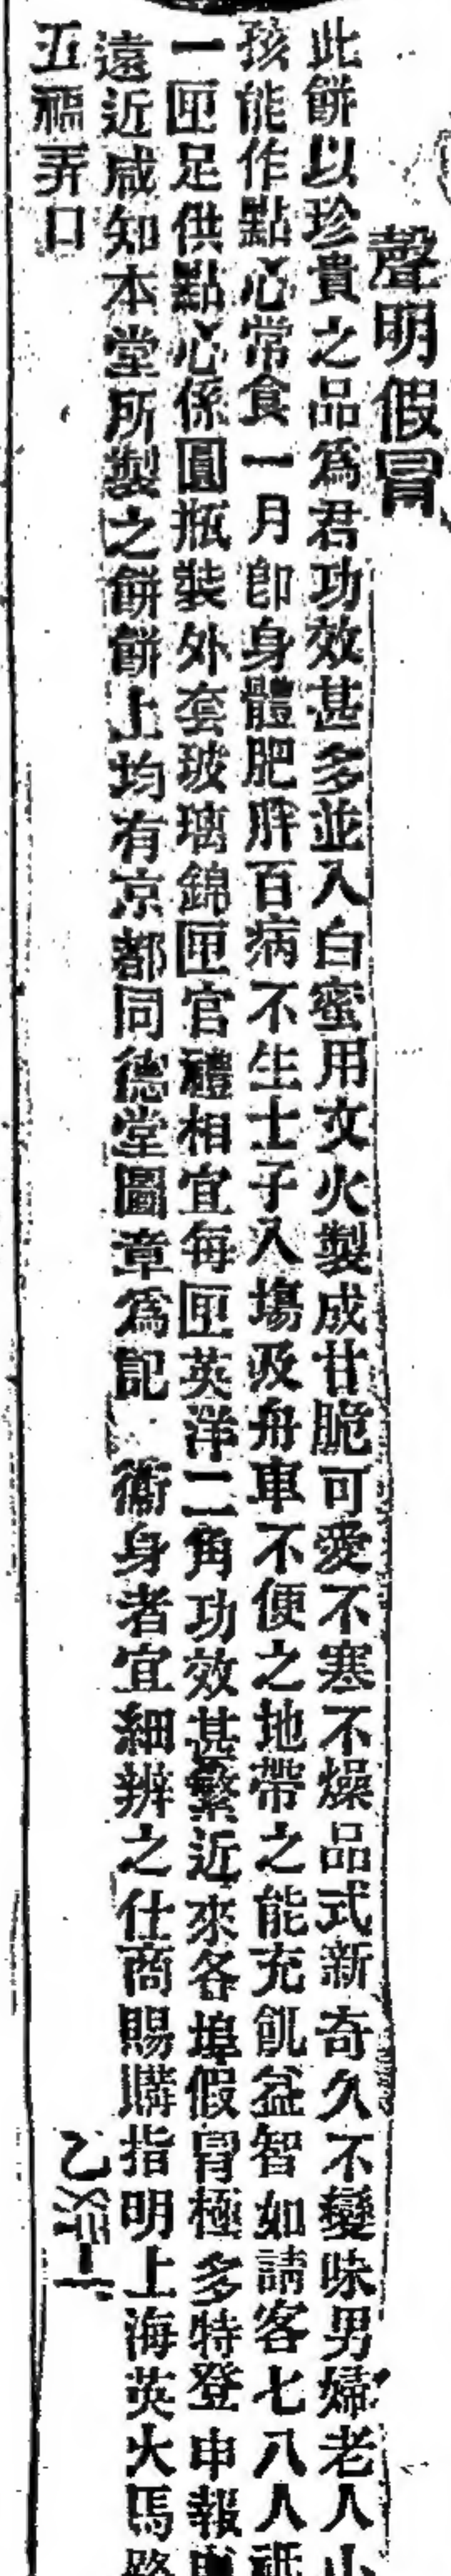 聲明假冒
此餅以珍貴之品爲君功效甚多並入白蜜用文火製成甘脆可愛不寒不燥品式新奇久不變味男婦老人小
孩能作點心常食一月卽身體肥胖百病不生士子入塲及舟車不便之地帶之能充飢益智如請客七八人祇
一匣足供點心係圓瓶裝外套玻璃錦匣官禮相宜每匣英洋二角功效甚繁近來各埠假冒極多特登申報
遠近咸知本堂所製之餅餅上均有京都同德堂圖章爲記 衞身者宜細辨之仕商賜購指明上海英大馬路
五福弄口